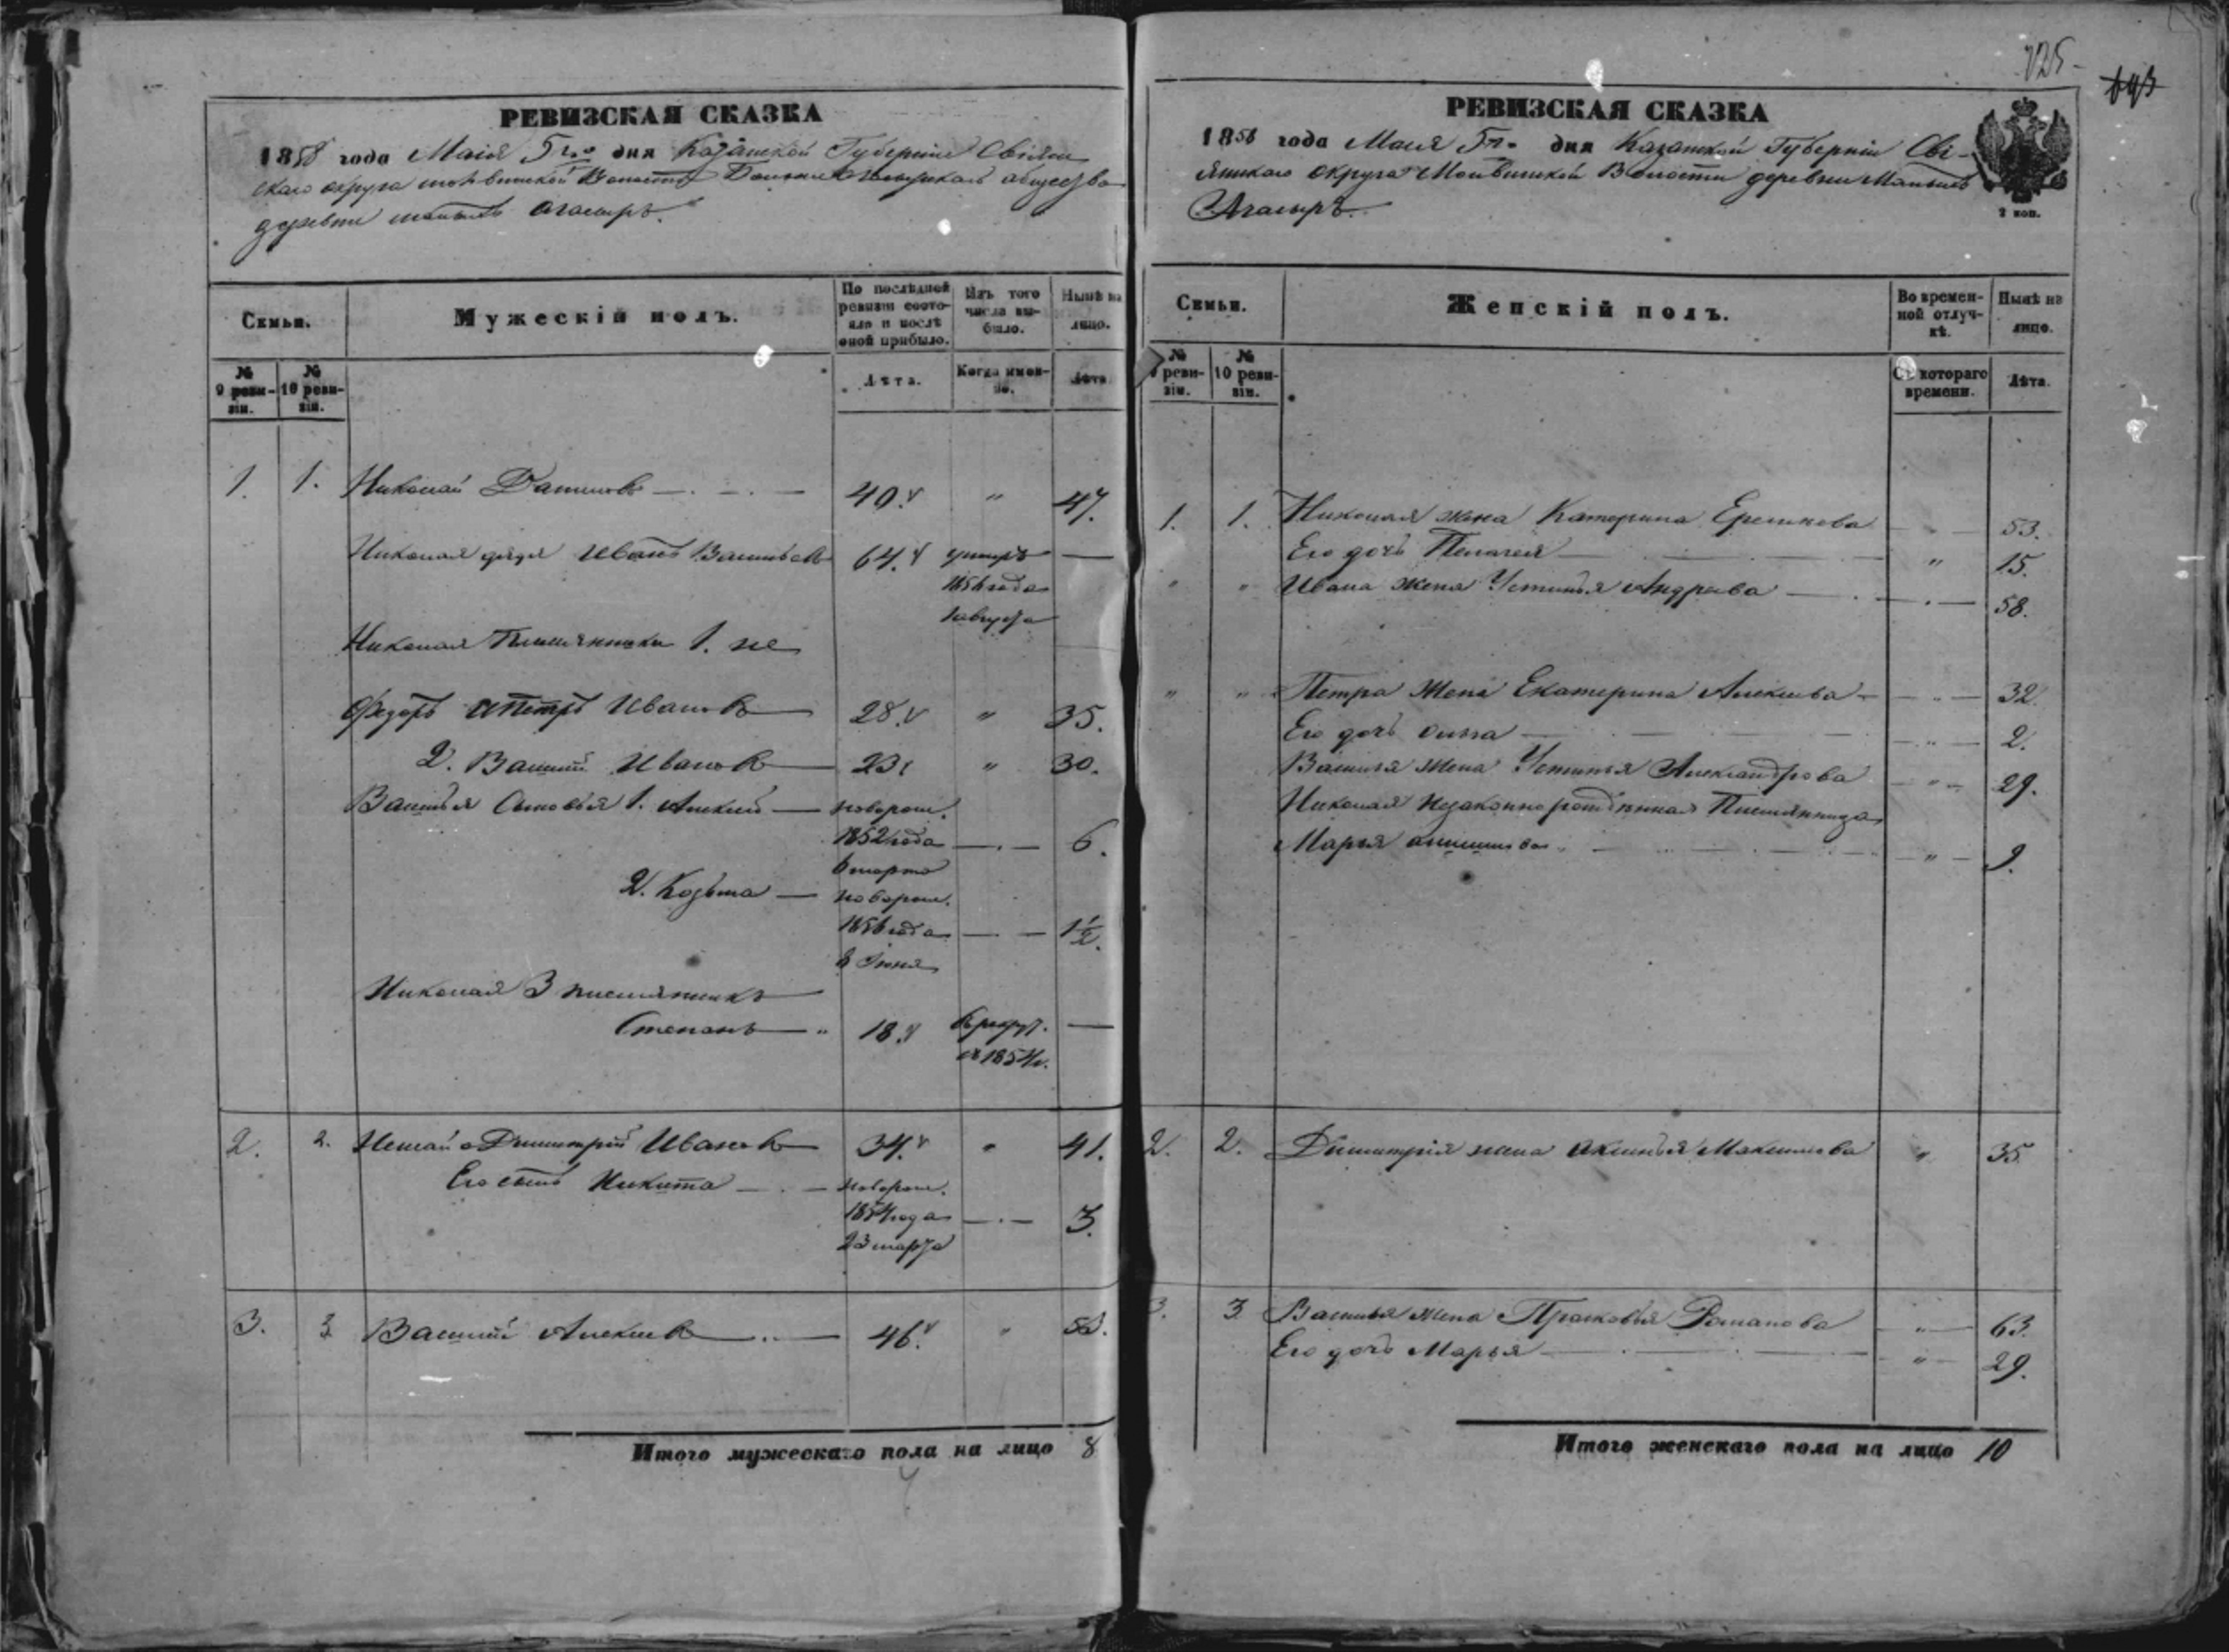 РЕВИЗСКАЯ СКАЗКА
1858 года Маія 5го дня Казанской Губерніи Свіяж
скаго округа Волости общества
деревни
Семьи.
Мужескій полъ.
По послѣдней ревизіи состояло и послѣ оной прибыло.
Изъ того числа выбыло.
Нынѣ на лицо.
№ 9 ревизіи.
№ 10 ревизіи.
Лѣта.
Когда именно.
Лѣта
1. 1. Николай 40. " 47.
Николая дядя Иванъ Васильевъ 64. умеръ —
1856 года
августа
Николая Племянники 1. не
Федоръ Петръ Ивановъ 28. " 35.
2. Василій Ивановъ 23 " 30.
Василья Сыновья 1. Алексей новорож.
1852 года 6.
6 марта
2. Козьма новорож.
1856 года 1½.
Іюня
Николая 3 племянникъ
Степанъ " 18. в рекрут. —
1854г.
2. 2. Димитрій Ивановъ 34. " 41.
Его сынъ Никита новорож.
1854 года 3.
23 марта
3. 3 Василий Алексеевъ 46. " 53.
Итого мужескаго пола на лицо 8
725
693
РЕВИЗСКАЯ СКАЗКА
1858 года Маія 5го дня Казанской Губерніи Сві-
яжскаго округа Волости деревни
2 коп.
Семьи.
Женскій полъ.
Во временной отлучкѣ.
Нынѣ на лицо.
№ 9 ревизіи.
№ 10 ревизіи.
Съ котораго времени.
Лѣта.
1. 1. Николая жена Катерина 53.
Его дочь Пелагея " 15.
" " Ивана жена Устинья Андреева 58.
" " Петра жена Екатерина Алексеева 32.
Его дочь 2.
Василья жена Устинья Александрова " 29.
Николая незаконнорожденная Племянница
Марья " 9.
2. 2. Димитрія жена Аксинья Максимова " 35
3. 3 Василья жена Прасковья Романова " 63.
Его дочь Марья " 29.
Итого женскаго пола на лицо 10